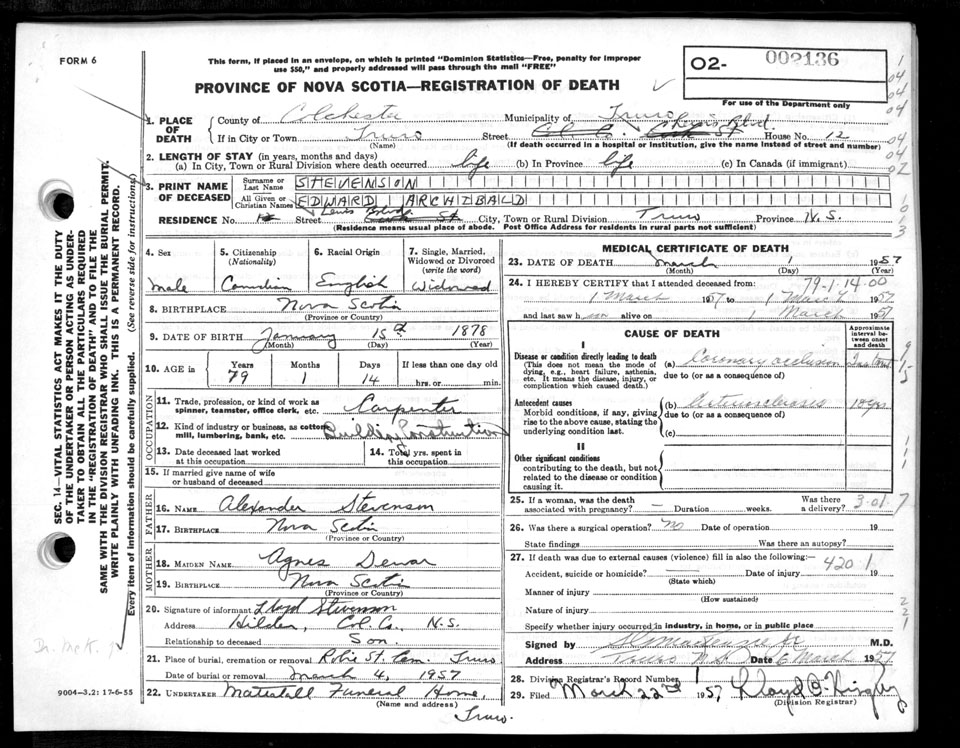 FORM 6
This form, if placed in an envelope, on which is printed "Dominion Statistics—Free, penalty for improper
use $50," and properly addressed will pass through the mail "FREE"
PROVINCE OF NOVA SCOTIA—REGISTRATION OF DEATH
02- 002136
For use of the Department only
1. PLACE OF DEATH
County of Colchester Municipality of Truro
If in City or Town Truro Street Blvd. House No. 12
(Name) (If death occurred in a hospital or institution, give the name instead of street and number)
2. LENGTH OF STAY (in years, months and days)
(a) In City, Town or Rural Division where death occurred life (b) In Province life (c) In Canada (if immigrant)
3. PRINT NAME OF DECEASED
Surname or Last Name STEVENSON
All Given or Christian Names EDWARD ARCHIBALD
RESIDENCE No. 12 Street City, Town or Rural Division Truro Province N.S.
(Residence means usual place of abode. Post Office Address for residents in rural parts not sufficient)
4. Sex Male
5. Citizenship (Nationality) Canadian
6. Racial Origin English
7. Single, Married, Widowed or Divorced (write the word) Widowed
8. BIRTHPLACE Nova Scotia
(Province or Country)
9. DATE OF BIRTH January 15th 1878
(Month) (Day) (Year)
10. AGE in Years 79 Months 1 Days 14 If less than one day old hrs. or min.
OCCUPATION
11. Trade, profession, or kind of work as spinner, teamster, office clerk, etc. Carpenter
12. Kind of industry or business, as cotton mill, lumbering, bank, etc. Building Construction
13. Date deceased last worked at this occupation
14. Total yrs. spent in this occupation
15. If married give name of wife or husband of deceased
FATHER
16. NAME Alexander Stevenson
17. BIRTHPLACE Nova Scotia
(Province or Country)
MOTHER
18. MAIDEN NAME Agnes Dewar
19. BIRTHPLACE Nova Scotia
(Province or Country)
20. Signature of informant Lloyd Stevenson
Address Hilden, Col. Co. N.S.
Relationship to deceased Son.
21. Place of burial, cremation or removal Robie St. Cem. Truro
Date of burial or removal March 4, 1957
22. UNDERTAKER Mattatall Funeral Home,
(Name and address)
Truro.
MEDICAL CERTIFICATE OF DEATH
23. DATE OF DEATH March 1 1957
(Month) (Day) (Year)
24. I HEREBY CERTIFY that I attended deceased from: 79-1-14.00
1 March 1957 to 1 March 1957
and last saw h alive on 1 March 1957
CAUSE OF DEATH
Approximate interval between onset and death
I
Disease or condition directly leading to death
(This does not mean the mode of dying, e.g., heart failure, asthenia, etc. It means the disease, injury, or complication which caused death.)
(a) Coronary occlusion
due to (or as a consequence of)
Antecedent causes
Morbid conditions, if any, giving rise to the above cause, stating the underlying condition last.
(b) Arteriosclerosis 10 yrs
due to (or as a consequence of)
(c)
II
Other significant conditions
contributing to the death, but not related to the disease or condition causing it.
25. If a woman, was the death associated with pregnancy? — Duration weeks. Was there a delivery? 3-01
26. Was there a surgical operation? no Date of operation 19
State findings Was there an autopsy?
27. If death was due to external causes (violence) fill in also the following:—
Accident, suicide or homicide? Date of injury 420 1 19
(State which)
Manner of injury
(How sustained)
Nature of injury
Specify whether injury occurred in industry, in home, or in public place
Signed by M.D.
Address Truro N.S. Date 6 March 1957
28. Division Registrar's Record Number
29. Filed March 22nd 1957 Lloyd
(Division Registrar)
SEC. 14—VITAL STATISTICS ACT MAKES IT THE DUTY
OF THE UNDERTAKER OR PERSON ACTING AS UNDER-
TAKER TO OBTAIN ALL THE PARTICULARS REQUIRED
IN THE "REGISTRATION OF DEATH" AND TO FILE THE
SAME WITH THE DIVISION REGISTRAR WHO SHALL ISSUE THE BURIAL PERMIT.
WRITE PLAINLY WITH UNFADING INK. THIS IS A PERMANENT RECORD.
Every item of information should be carefully supplied. (See reverse side for instructions)
Dr. McK.
9004—3.2: 17-6-55